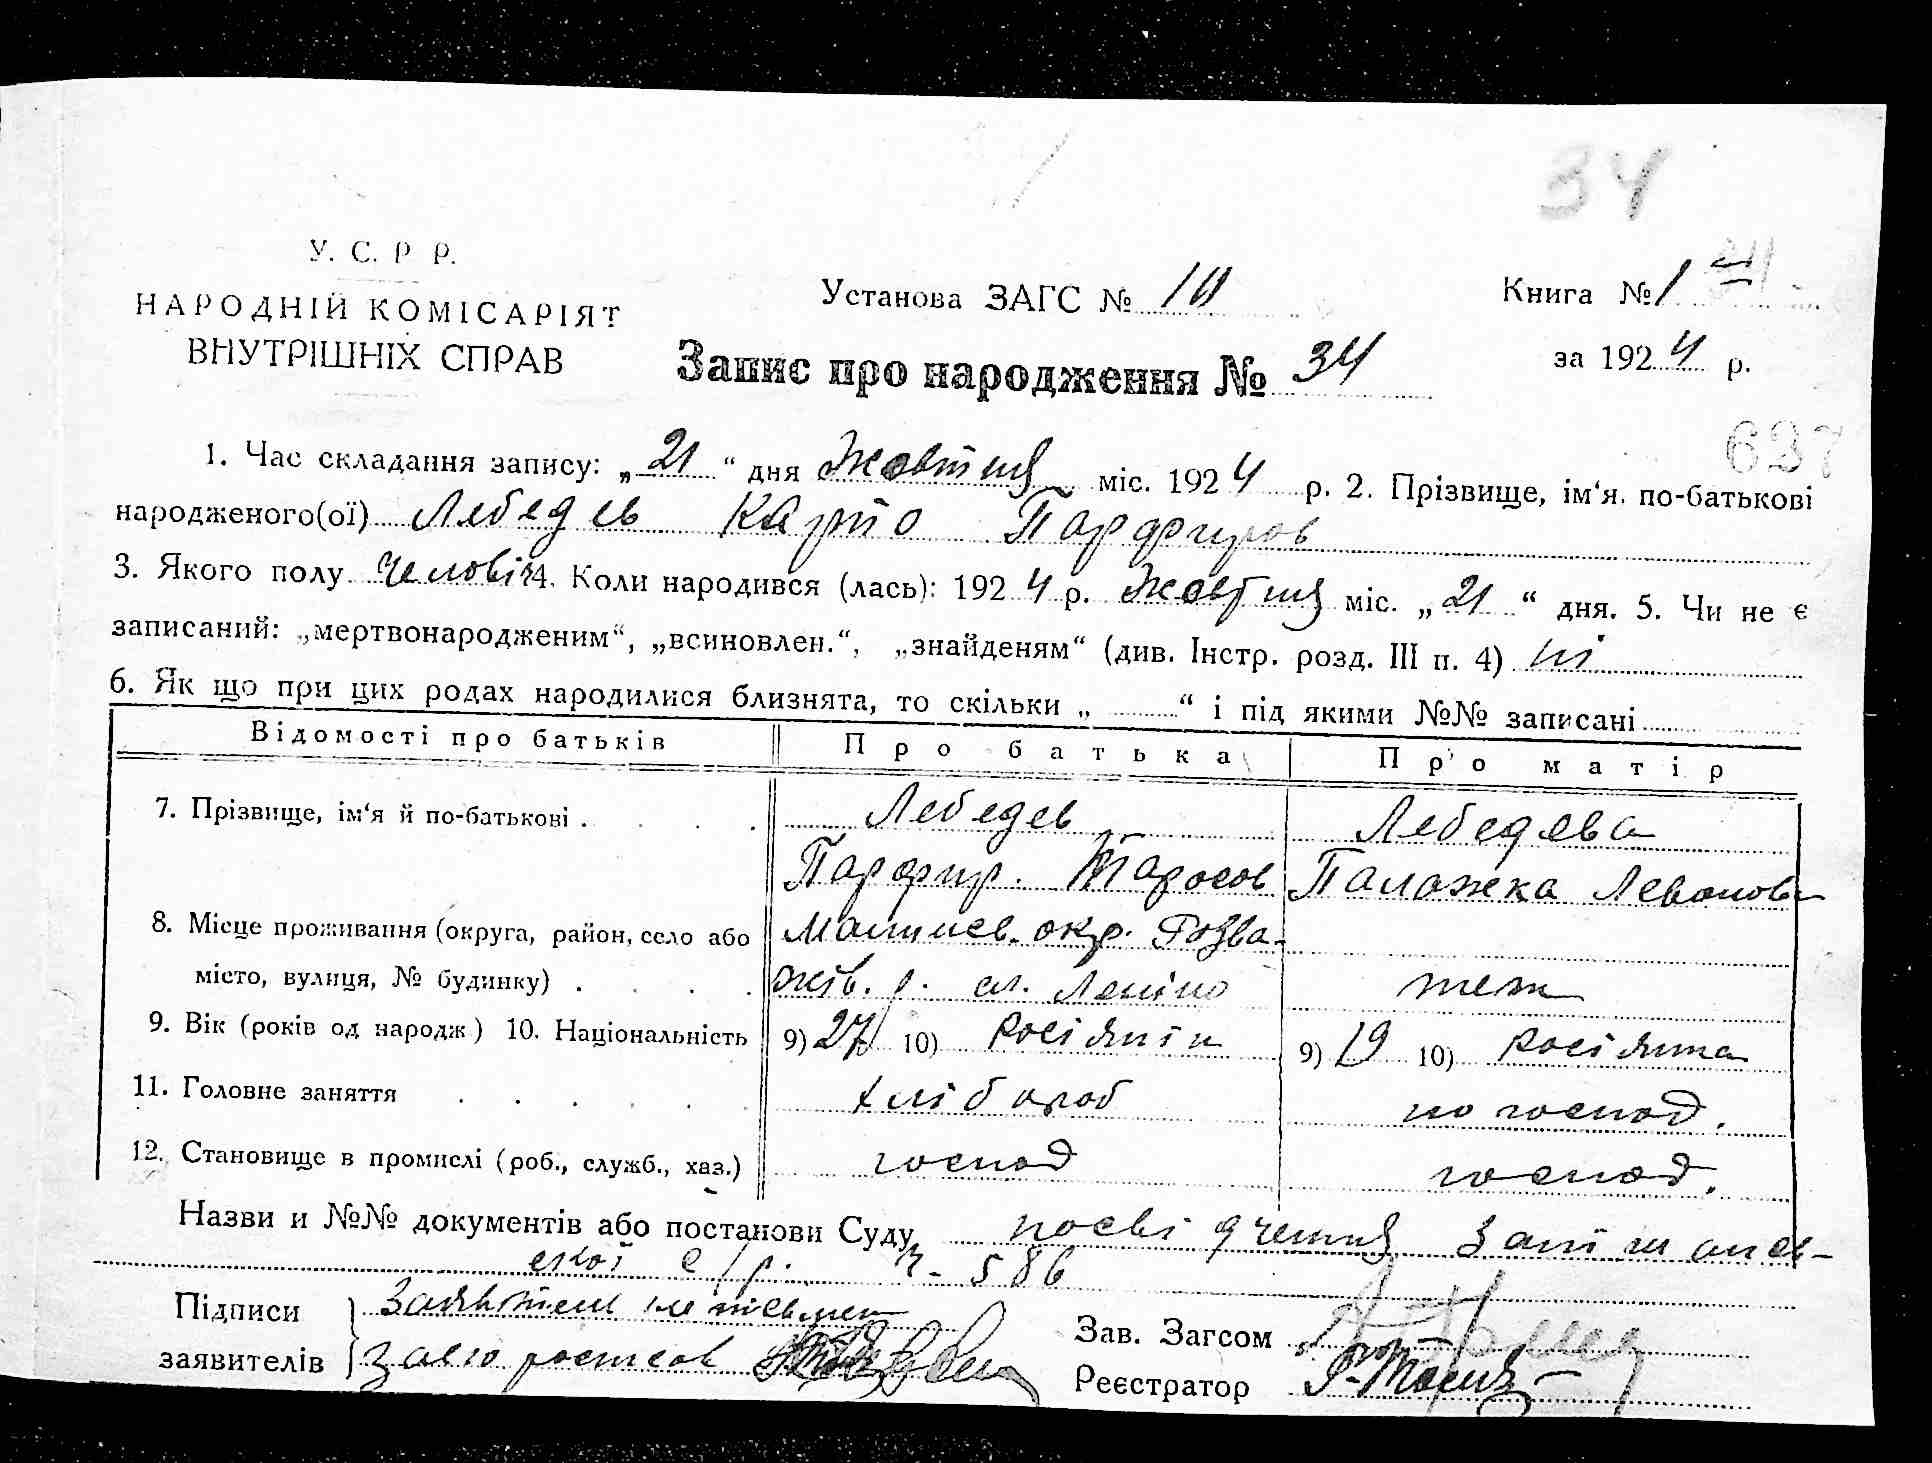 34
У. С. Р. Р.
НАРОДНІЙ КОМІСАРІЯТ
ВНУТРІШНІХ СПРАВ
Установа ЗАГС № 10
Книга № 1
за 1924 р.
Запис про народження № 34
637
1. Час складання запису: „21“ дня Жовтня міс. 1924 р. 2. Прізвище, ім‘я, по-батькові
народженого(ої) Лебедєв Карпо Парфиров
3. Якого полу Человіч 4. Коли народився (лась): 1924 р. Жовтня міс. „21“ дня. 5. Чи не є
записаний: „мертвонародженим“, „всиновлен.“, „знайденям“ (див. Інстр. розд. III п. 4) ні
6. Як що при цих родах народилися близнята, то скільки „ “ і під якими №№ записані
Відомості про батьків Про батька Про матір
7. Прізвище, ім‘я й по-батькові Лебедев Лебедева
Парфир. Тарасов Палажка Леванова
8. Місце проживання (округа, район, село або Малинсв. окр. Розва-
місто, вулиця, № будинку) жів. р. сл. Леніно теж
9. Вік (років од народж) 10. Національність 9) 27 10) Росіянін 9) 19 10) Росіянка
11. Головне заняття хлібороб по господ.
12. Становище в промислі (роб., служб., хаз.) господ господ.
Назви и №№ документів або постанови Суду посвідчення
ської с/р. ч. 586
Підписи
заявителів за його розпис
Зав. Загсом
Реєстратор